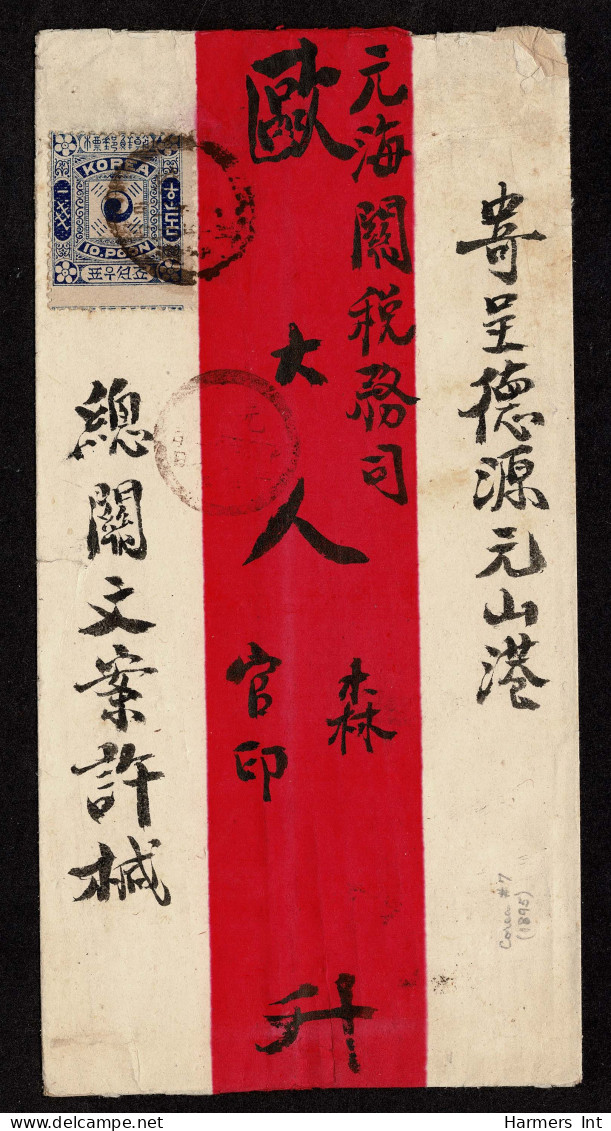 寄呈德源元山港
元海關稅務司
歐大人
森
官印
升
總關文案許椷
KOREA
10. POON
Corea #7
(1895)
Harmers Int